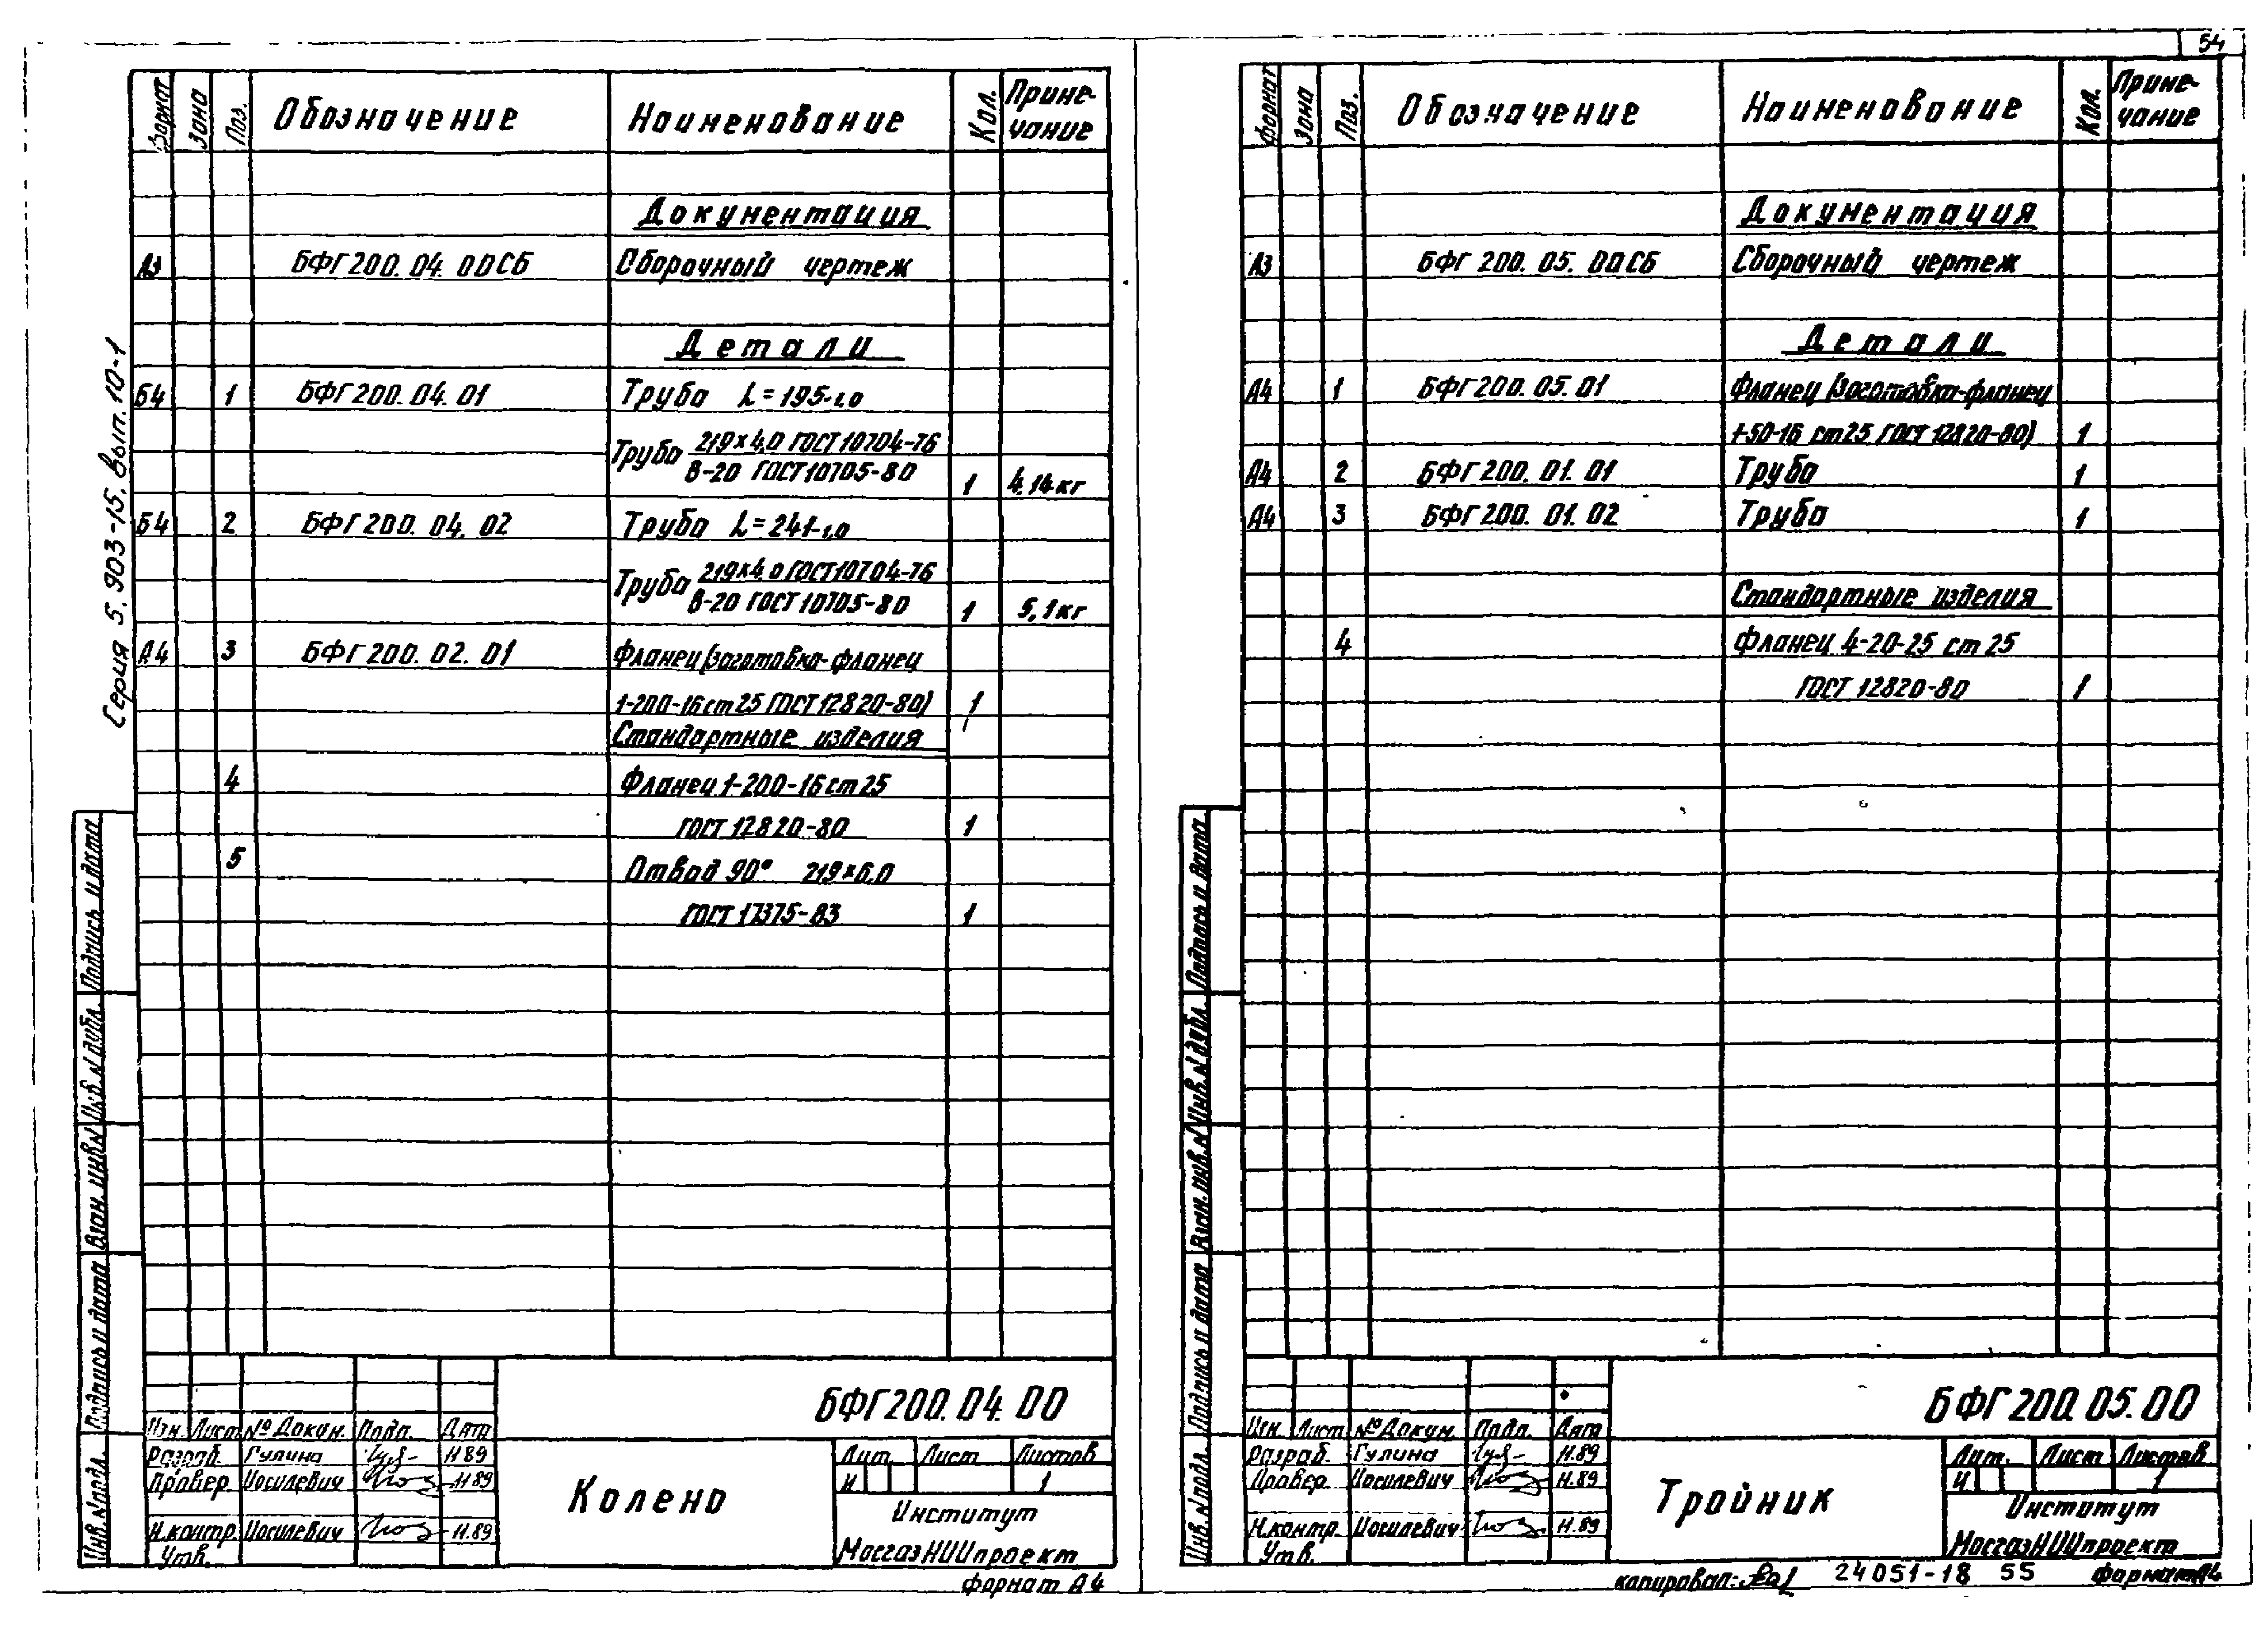 54
Серия 5.903-15. вып. 10-1
Формат Зона Поз. Обозначение Наименование Кол. Приме-
чание
Документация
А3 БФГ200.04.00СБ Сборочный чертеж
Детали
Б4 1 БФГ200.04.01 Труба L=195-1,0
Труба 219×4,0 ГОСТ10704-76
В-20 ГОСТ10705-80 1 4,14кг
Б4 2 БФГ200.04.02 Труба L=241-1,0
Труба 219×4,0 ГОСТ10704-76
В-20 ГОСТ10705-80 1 5,1кг
А4 3 БФГ200.02.01 Фланец (заготовка-фланец
1-200-16 ст25 ГОСТ12820-80) 1
Стандартные изделия
4 Фланец 1-200-16 ст25
ГОСТ 12820-80 1
5 Отвод 90° 219×6,0
ГОСТ 17375-83 1
Подпись и дата
Инв.№дубл.
Взам.инв.№
Подпись и дата
Инв.№подл.
БФГ200.04.00
Изм. Лист №Докум. Подп. Дата
Разраб. Гулина 11.89
Провер Иосилевич 11.89
Н.контр. Иосилевич 11.89
Утв.
Колено
Лит. Лист Листов
И 1
Институт
МосгазНИИпроект
формат А4
Формат Зона Поз. Обозначение Наименование Кол. Приме-
чание
Документация
А3 БФГ200.05.00СБ Сборочный чертеж
Детали
А4 1 БФГ200.05.01 Фланец (заготовка-фланец
1-50-16 ст25 ГОСТ12820-80) 1
А4 2 БФГ200.01.01 Труба 1
А4 3 БФГ200.01.02 Труба 1
Стандартные изделия
4 Фланец 4-20-25 ст25
ГОСТ 12820-80 1
Подпись и дата
Инв.№дубл.
Взам.инв.№
Подпись и дата
Инв.№подл.
БФГ200.05.00
Изм. Лист №Докум. Подп. Дата
Разраб. Гулина 11.89
Провер. Иосилевич 11.89
Н.контр. Иосилевич 11.89
Утв.
Тройник
Лит. Лист Листов
И 1
Институт
МосгазНИИпроект
копировал: 24051-18 55 формат А4